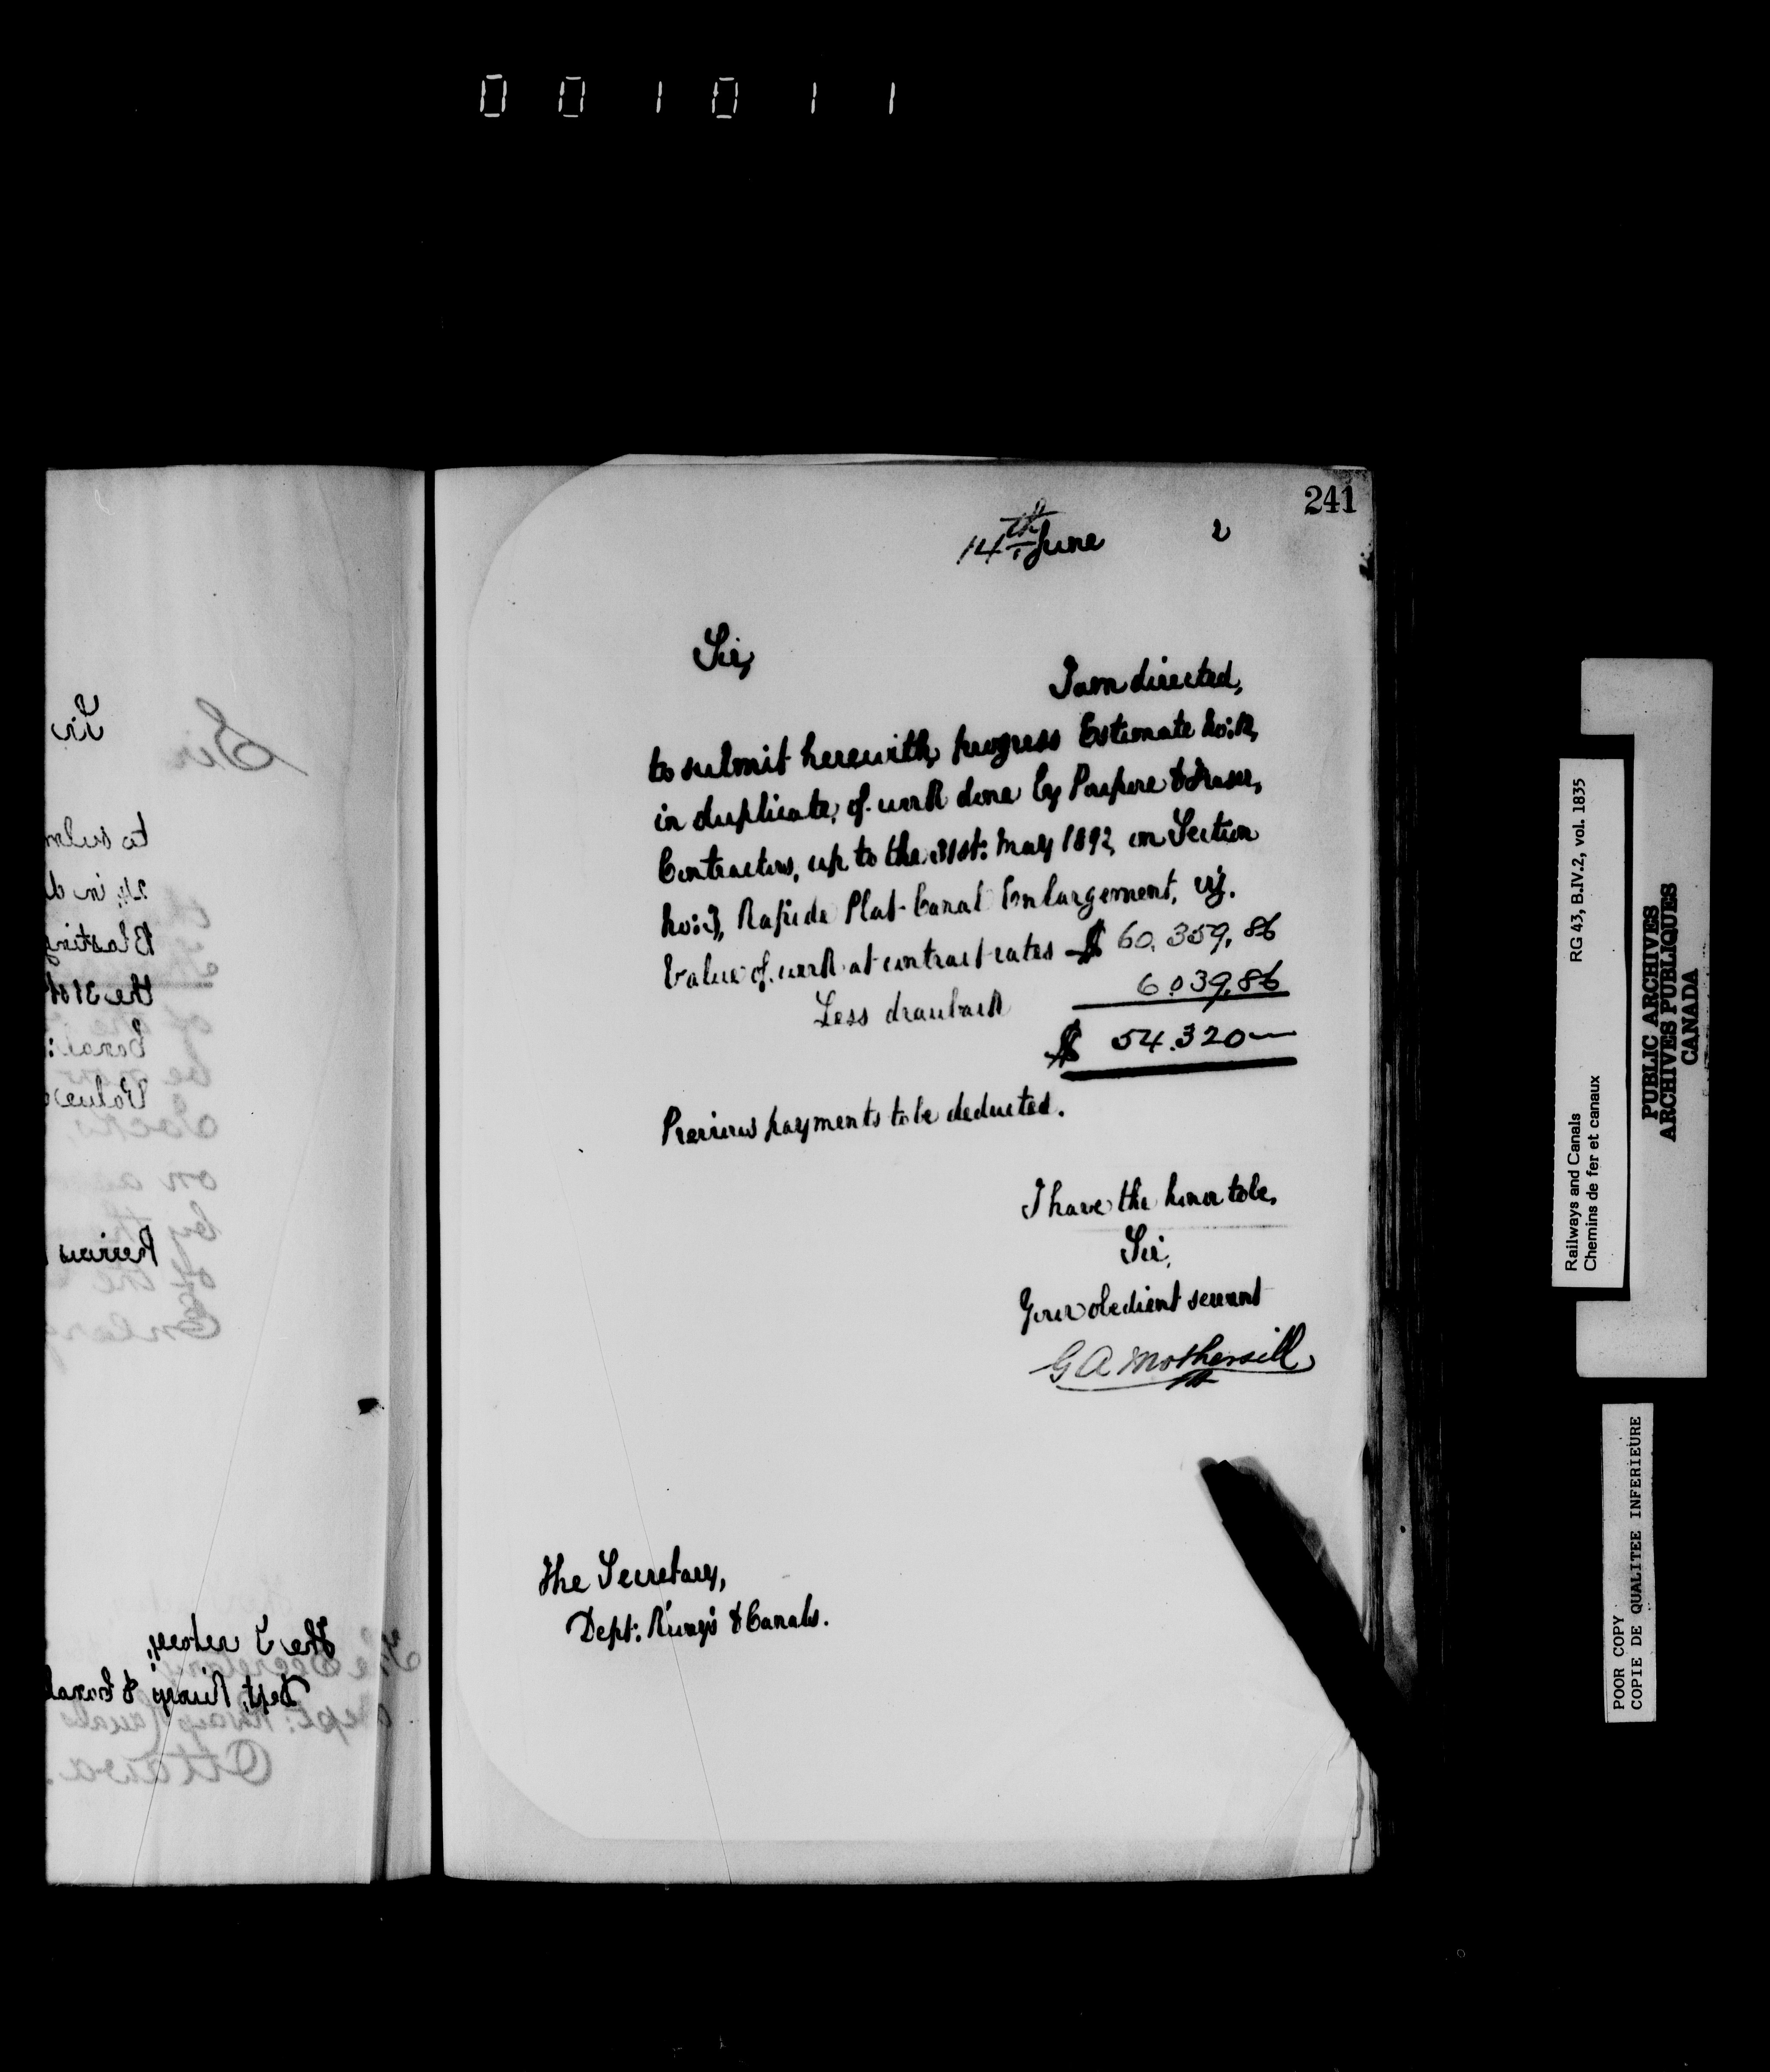 001011
241
14th June 2
Sir,
I am directed,
to submit herewith, progress Estimate
in duplicate, of work done by Poupore & Fraser,
Contractors, up to the 31st: May 1892, on Section
Rapide Plat Canal Enlargement, viz.
Value of work at contract rates $ 60,359,86
Less drawback 6.039,86
$ 54.320—
Previous payments to be deducted.
I have the honor to be,
Sir,
Your obedient servant
G A Mothersill
The Secretary,
Dept: R'ways & Canals.
Sir
Sir
to subm
24, in d
Blasting
the 31st
Canal:
Value o
Previous
The S retary,
Dept, R'ways & Canal
Ottawa.
Railways and Canals RG 43, B.IV.2, vol. 1835
Chemins de fer et canaux
PUBLIC ARCHIVES
ARCHIVES PUBLIQUES
CANADA
POOR COPY
COPIE DE QUALITEE INFERIEURE